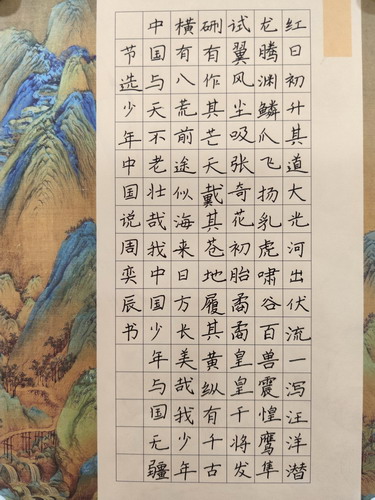 红日初升其道大光河出伏流一泻汪洋潜
龙腾渊鳞爪飞扬乳虎啸谷百兽震惶鹰隼
试翼风尘吸张奇花初胎矞矞皇皇干将发
硎有作其芒天戴其苍地履其黄纵有千古
横有八荒前途似海来日方长美哉我少年
中国与天不老壮哉我中国少年与国无疆
节选少年中国说周奕辰书